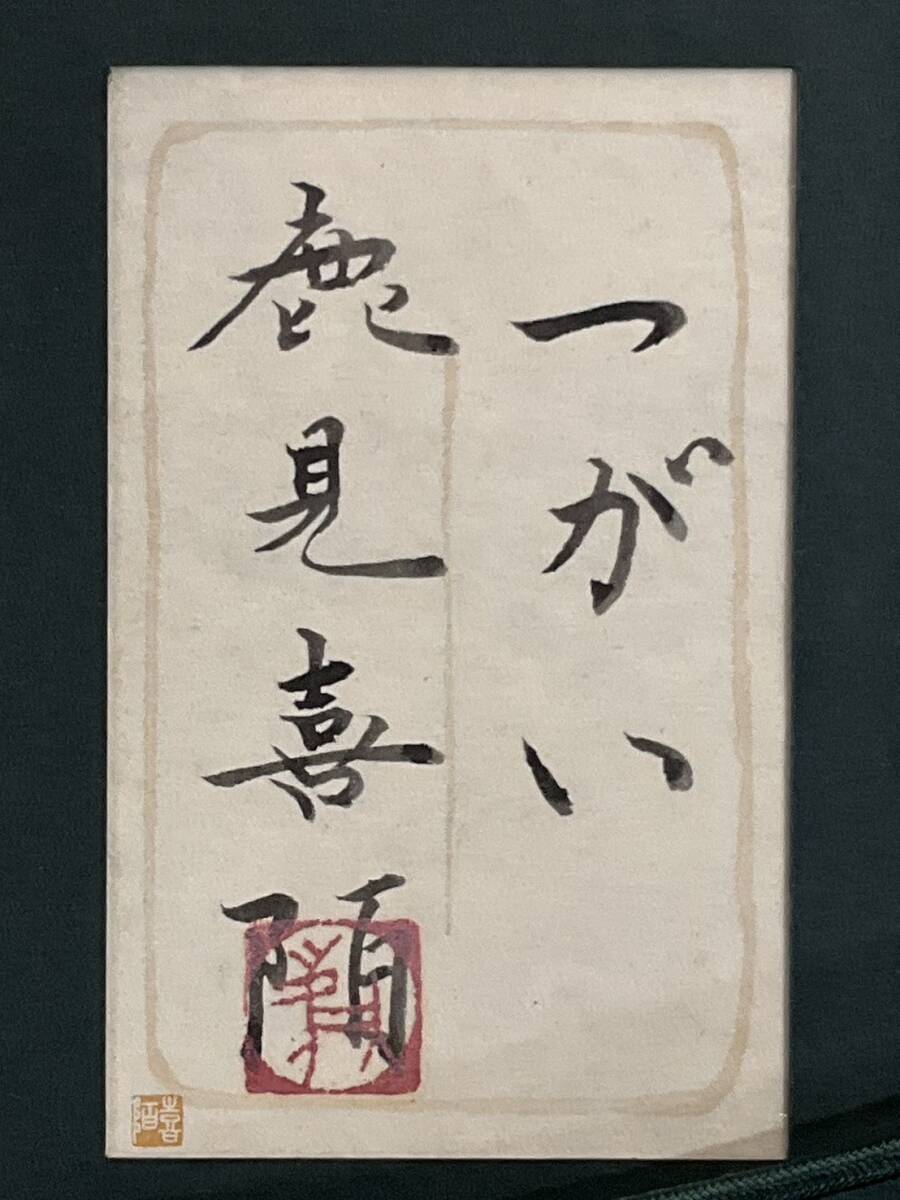 つがい
鹿見喜陌
喜陌